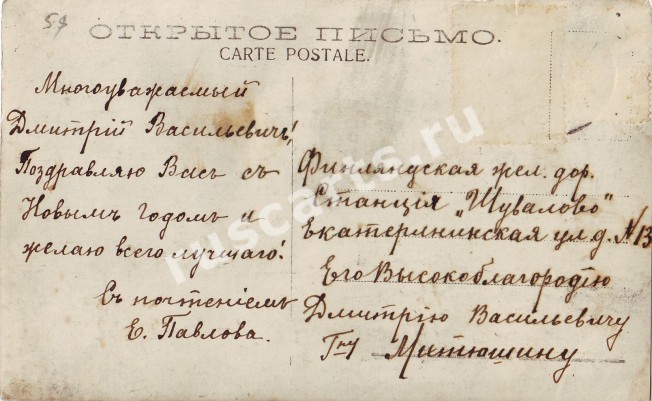 59
ОТКРЫТОЕ ПИСЬМО.
CARTE POSTALE.
Многоуважаемый
Дмитрій Васильевичъ!
Поздравляю Васъ съ
Новымъ Годомъ и
желаю всего лучшаго!
Съ почтеніемъ
Е. Павлова.
Финляндская жел. дор.
Станція „Шувалово"
Екатерининская ул. д. № 13
Его Высокоблагородію
Дмитрію Васильевичу
Гну Митюшину
ruscarts.ru